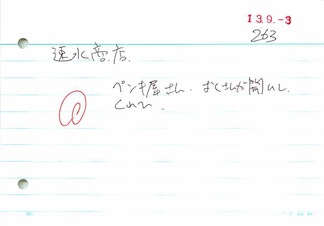 13.9.-3
263
速水商店.
ペンキ屋さん.おくさんが
くれた.